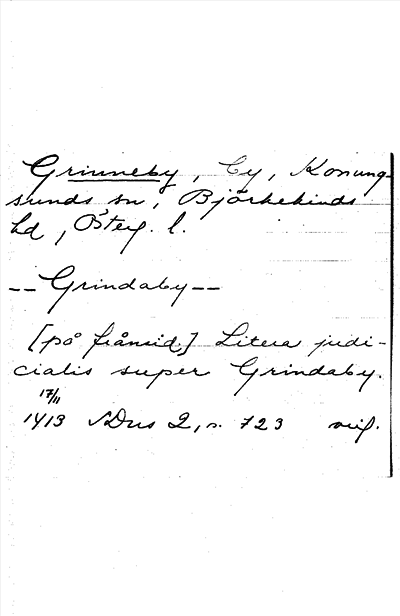 Grinneby, by, Konung-
sunds sn, Björkekinds
hd, Österg. l.
-- Grindaby --
[på frånsid.] Litera judi-
cialis super Grindaby.
17/11
1413 SDns 2, s. 723 orig.